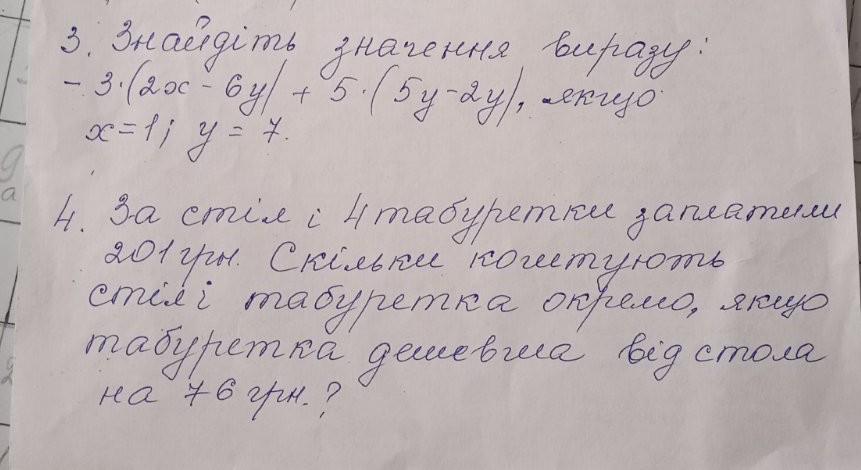 3. Знайдіть значення виразу:
- 3·(2x - 6y) + 5·(5y-2y), якщо
x=1; y = 7.
4. За стіл і 4 табуретки заплатили
201 грн. Скільки коштують
стіл і табуретка окремо, якщо
табуретка дешевша від стола
на 76 грн.?